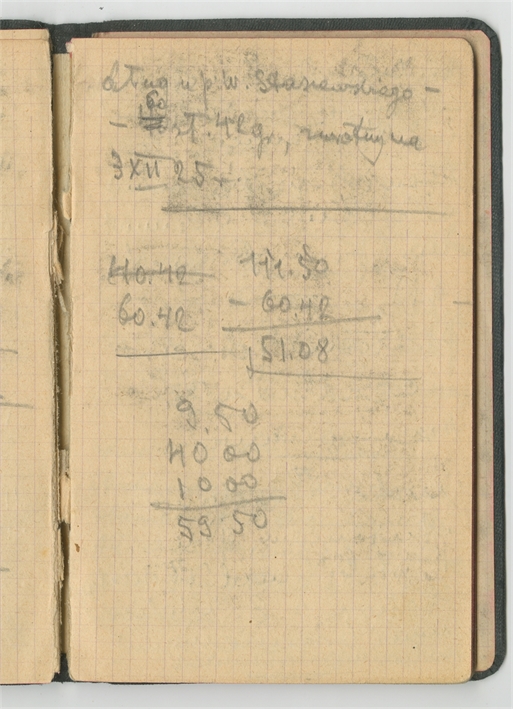 dług u p. W. Stasiewskiego –
– 60 zł. 42 g., zwrotny na
3 XII 25.
40.42 111.50
60.42 – 60.42
51.08
9.50
40 00
10 00
59 50